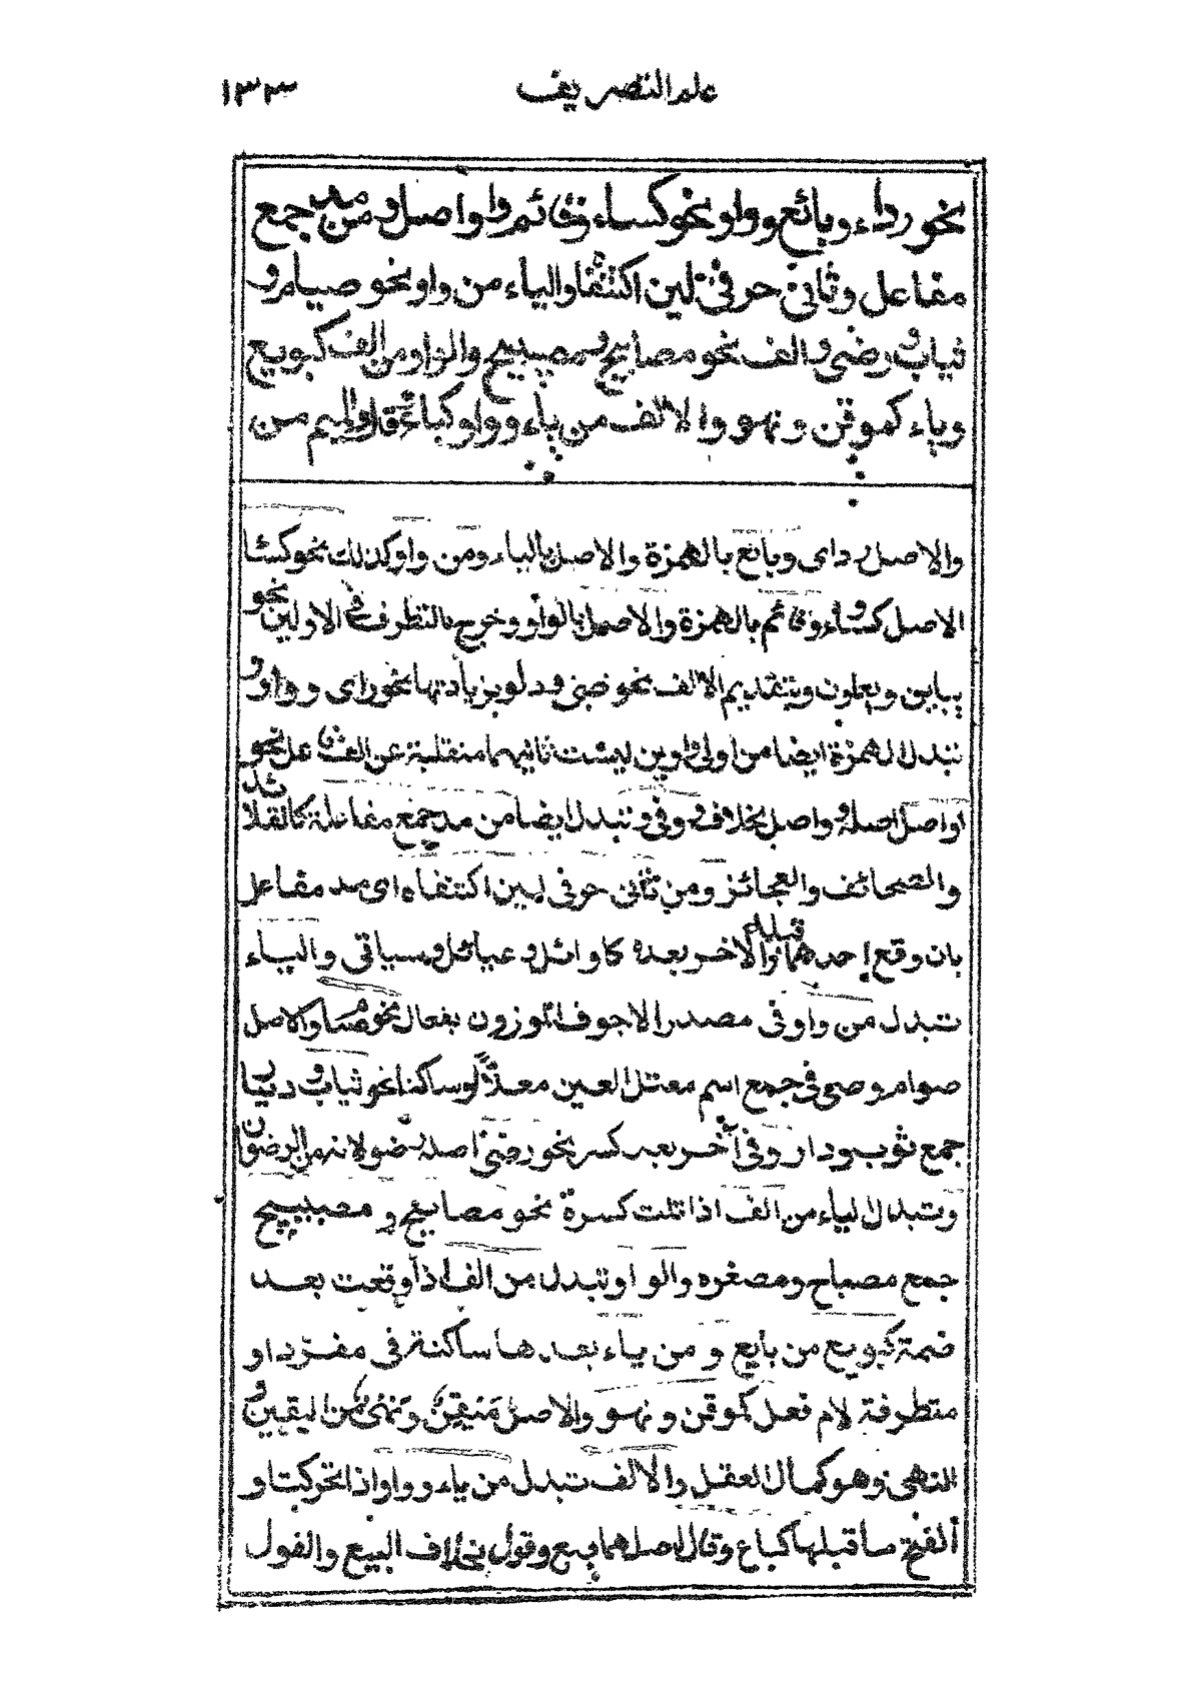 علم التصريف ١٣٣
نحو رداء وبائع وواو نحو كساء وقائم واواصل ومن مد جمع
مفاعل وثاني حرفي لين اكتنفا والياء من واو نحو صيام و
ثياب ورضى والف نحو مصابيح ومصيبيح والواو من الف كبويع
وياء كموقن ونهو والالف من ياء وواو كباع وقال والميم من
والاصل رداى وبائع بالهمزة والاصل بالياء ومن واو كذلك نحو كسا
الاصل كساو وقائم بالهمزة والاصل بالواو وخرج بالتطرف في الاولين نحو
يباين ويعاون وبتقديم الالف نحو ظبي ودلو بزيادتها نحو راى وواو و
تبدل الهمزة ايضا من اولى واوين ليست ثانيهما منقلبة عن الف فاعل نحو
اواصل اصله وواصل بخلاف ووفى وتبدل ايضا من مد جمع مفاعل كالقلائد
والصحائف والعجائز ومن ثاني حرفي لين اكتنفاه اى مد مفاعل
بان وقع احدهما قبله والاخر بعده كاوائل وعيائل وسياقى والياء
تبدل من واو في مصدر الاجوف الموزون بفعال نحو صيام والاصل
صوام وصى في جمع اسم معتل العين معلا او ساكنا نحو ثياب وديار
جمع ثوب ودار وفي آخر بعد كسر نحو رضى اصله رضو لانه من الرضوان
وتبدل الياء من الف اذا تلت كسرة نحو مصابيح و مصيبيح
جمع مصباح ومصغره والواو تبدل من الف اذا وقعت بعد
ضمة كبويع من بايع و من ياء بعدها ساكنة في مفرد او
متطرفة لام فعل كموقن و نهو والاصل ميقن ونهى من اليقين و
النهى وهو كمال العقل والالف تبدل من ياء وواو اذا تحركتا و
انفتح ما قبلها كباع وقال اصلهما بيع وقول بخلاف البيع والقول